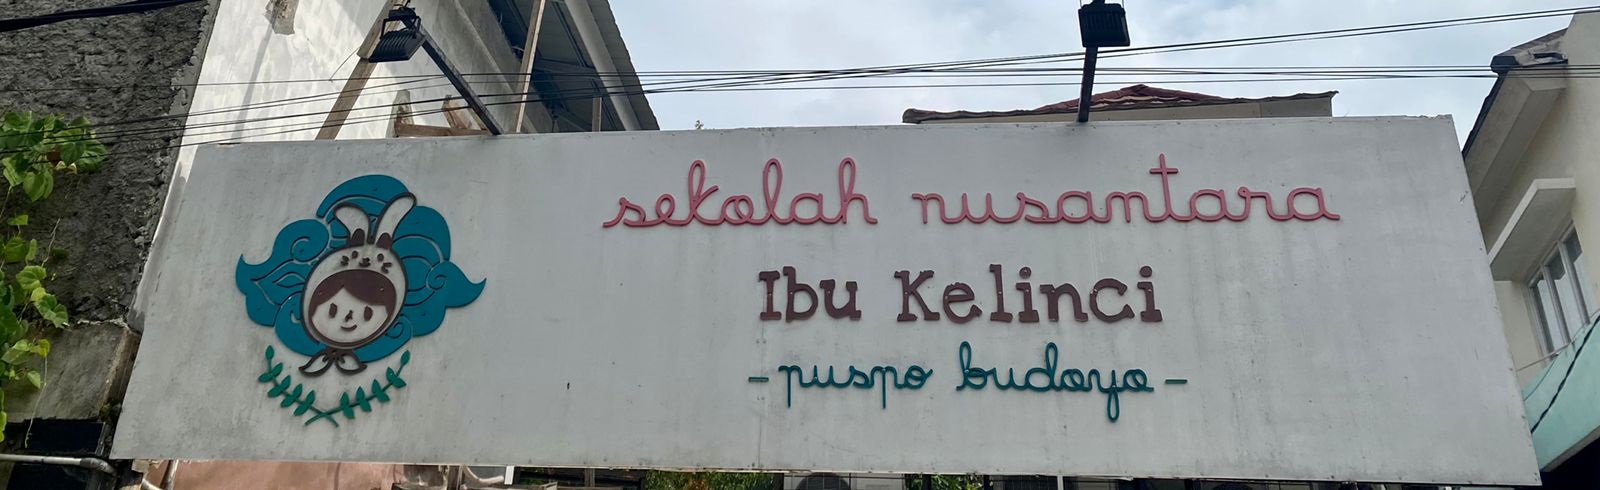 sekolah nusantara
Ibu Kelinci
- puspo budoyo -